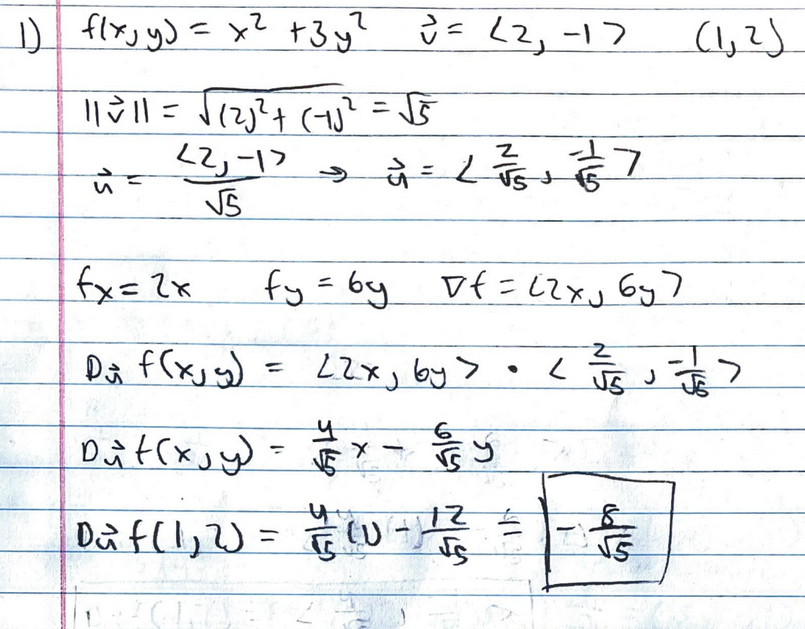 1) f(x,y) = x² + 3y² v⃗ = <2, -1> (1,2)
||v⃗|| = √((2)² + (-1)²) = √5
u⃗ = <2, -1>/√5 → u⃗ = <2/√5, -1/√5>
fx = 2x fy = 6y ∇f = <2x, 6y>
Du⃗ f(x,y) = <2x, 6y> • <2/√5, -1/√5>
Du⃗ f(x,y) = 4/√5 x - 6/√5 y
Du⃗ f(1,2) = 4/√5 (1) - 12/√5 = -8/√5